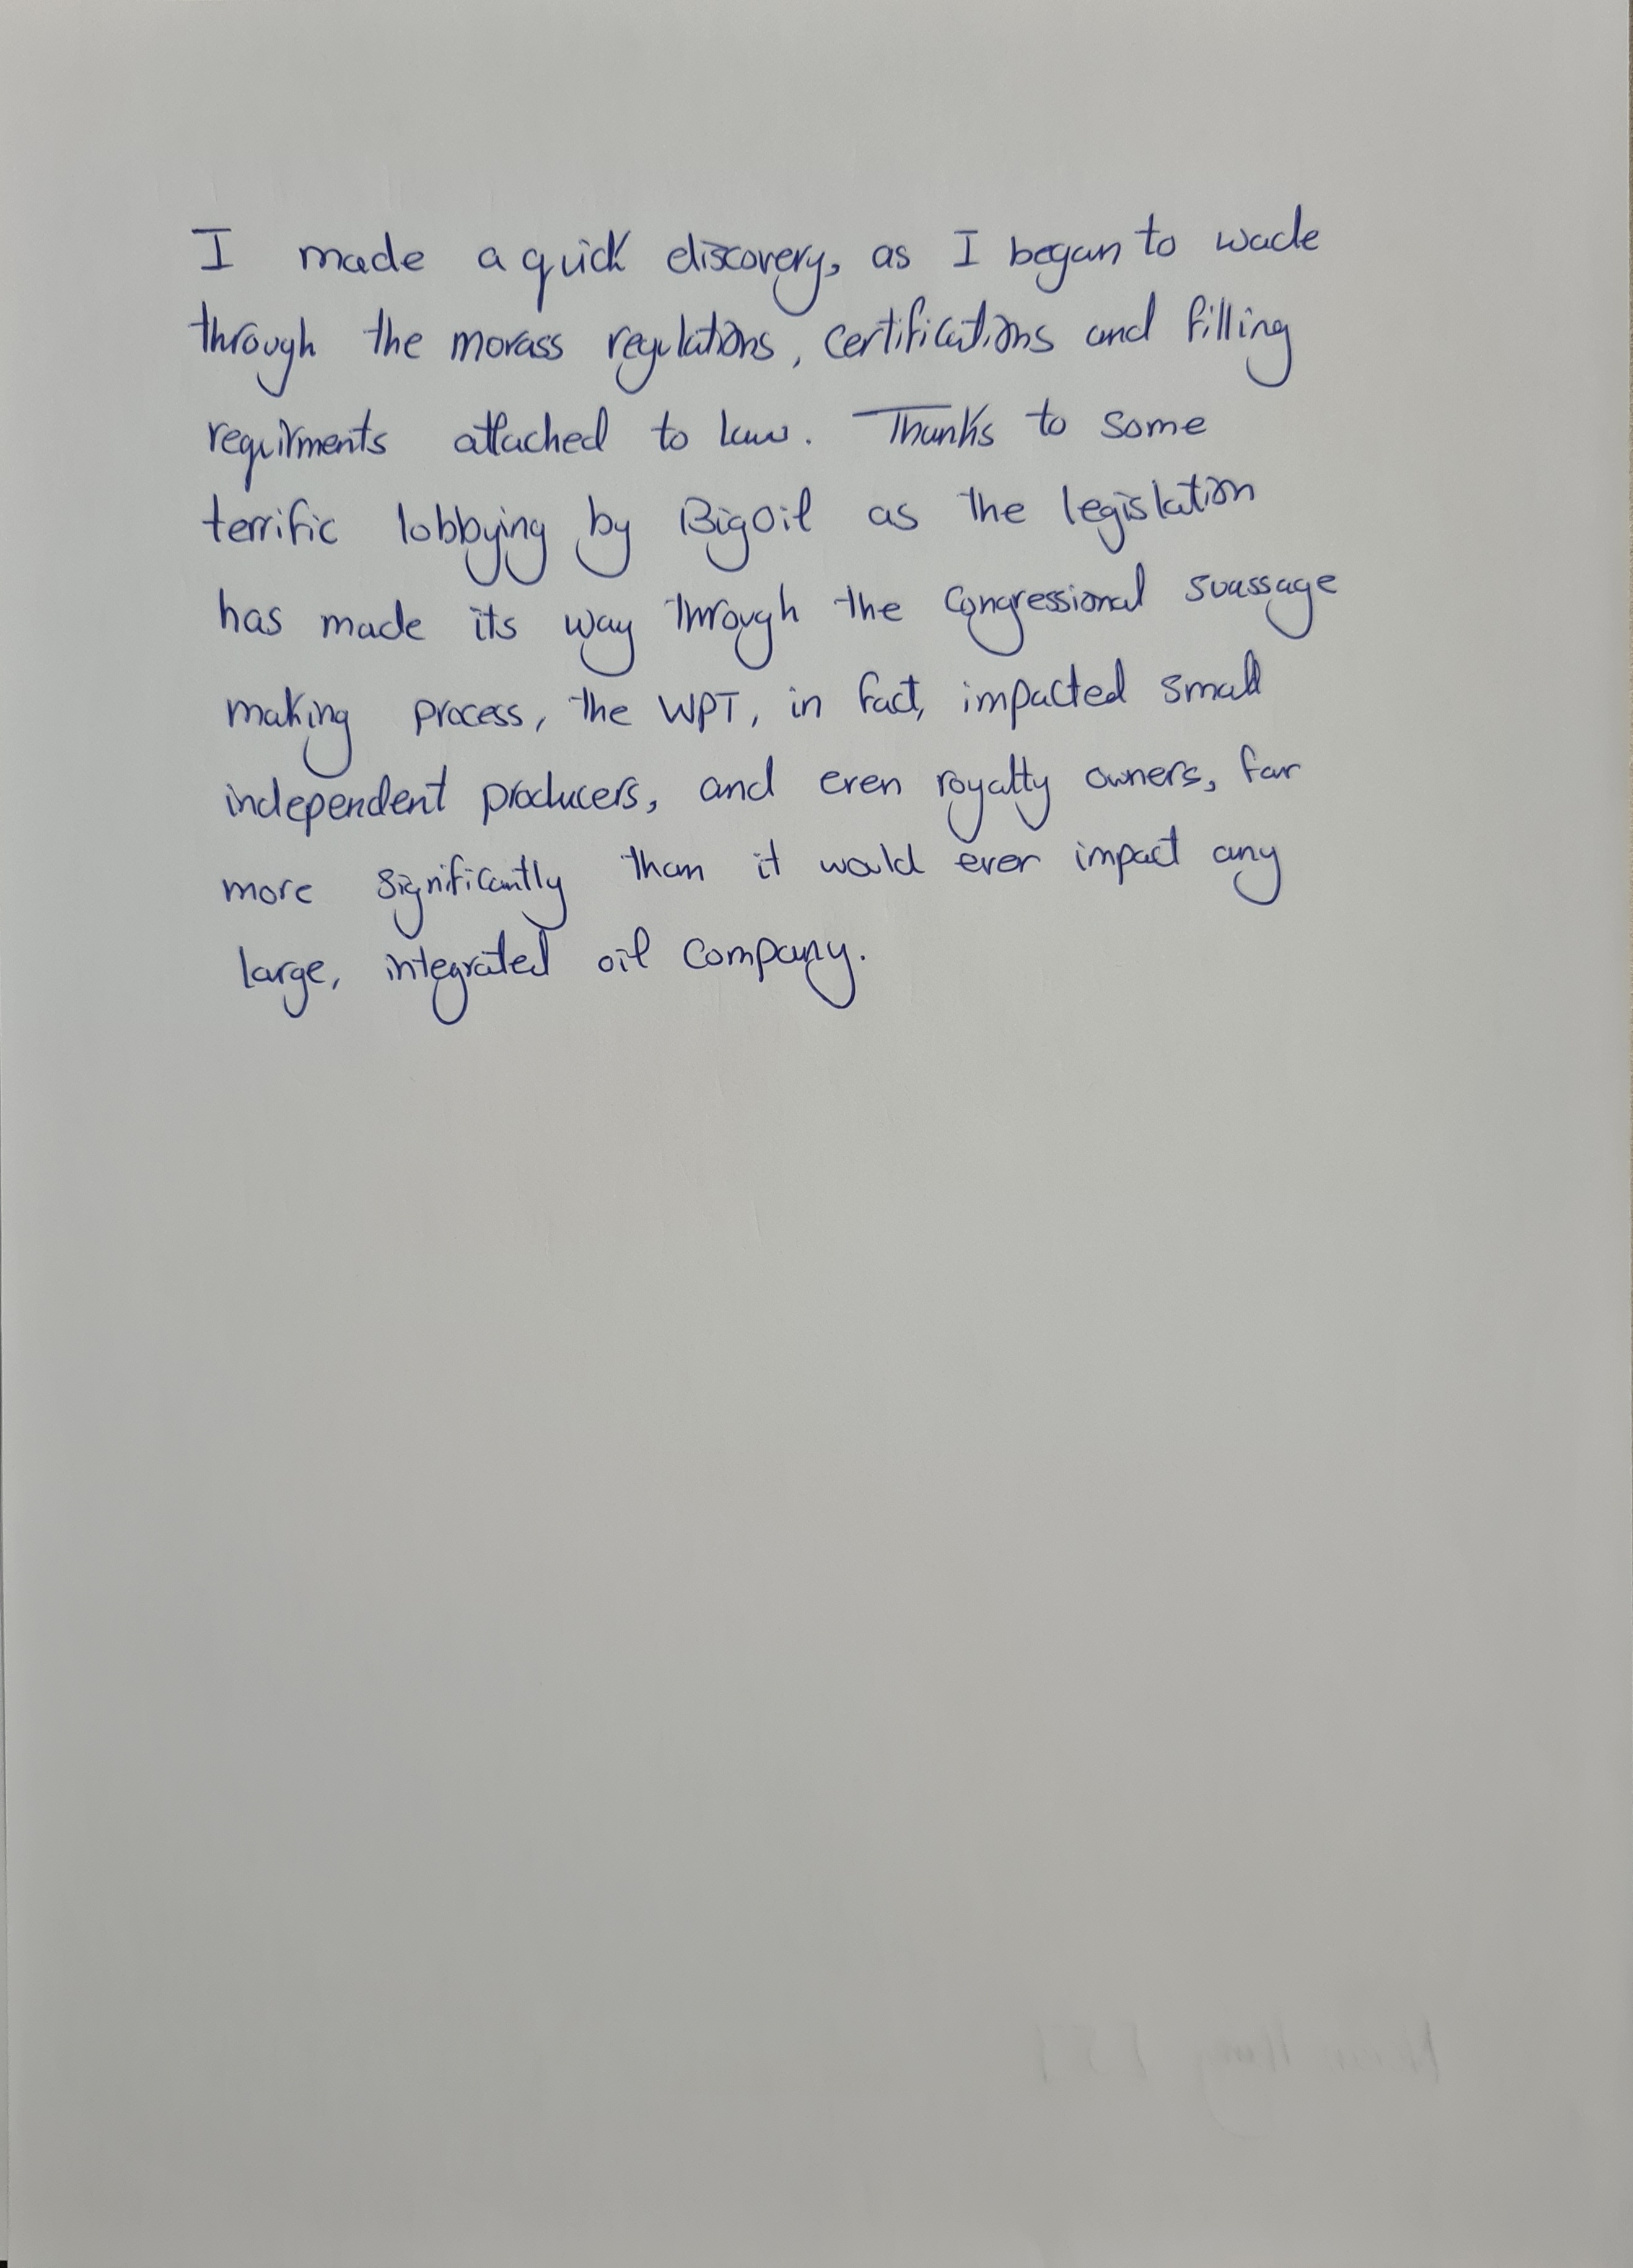 I made a quick discovery, as I began to wade
through the morass regulations, certifications and filling
requirments attached to law. Thanks to some
terrific lobbying by BigOil as the legislation
has made its way through the Congressional suassage
making process, the WPT, in fact, impacted small
independent producers, and even royalty owners, far
more significantly than it would ever impact any
large, integrated oil company.